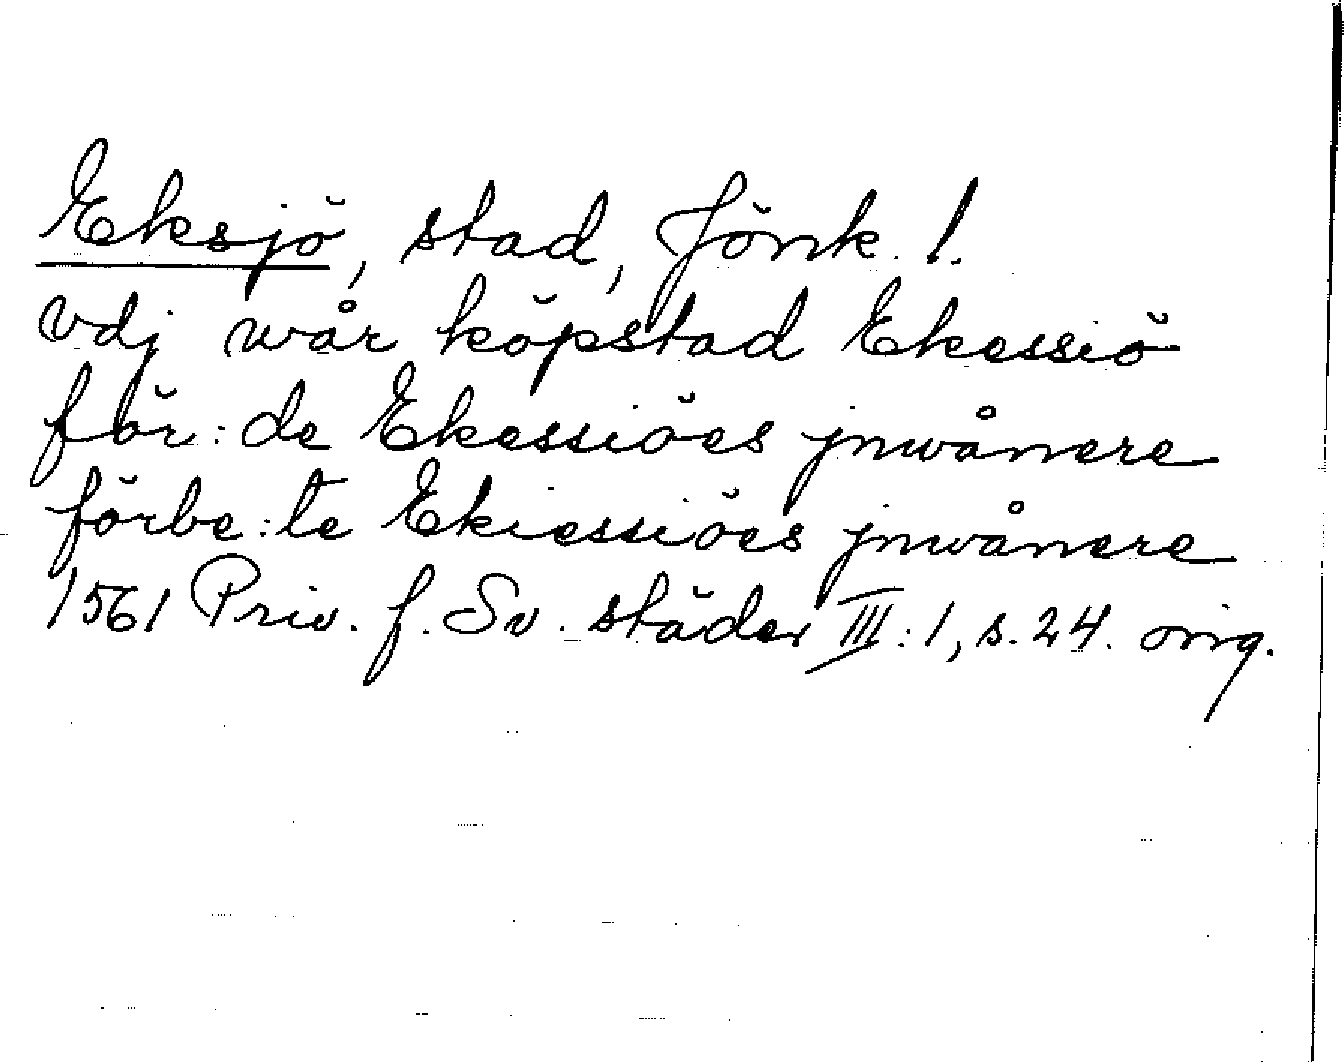 Eksjö, stad, Jönk. l.
vdj wår köpstad Ekessiö
för: de Ekessiöes jnwånere
förbe: te Ekiessiöes jnwånere
1561 Priv. f. Sv. städer III: 1, s. 24. orig.